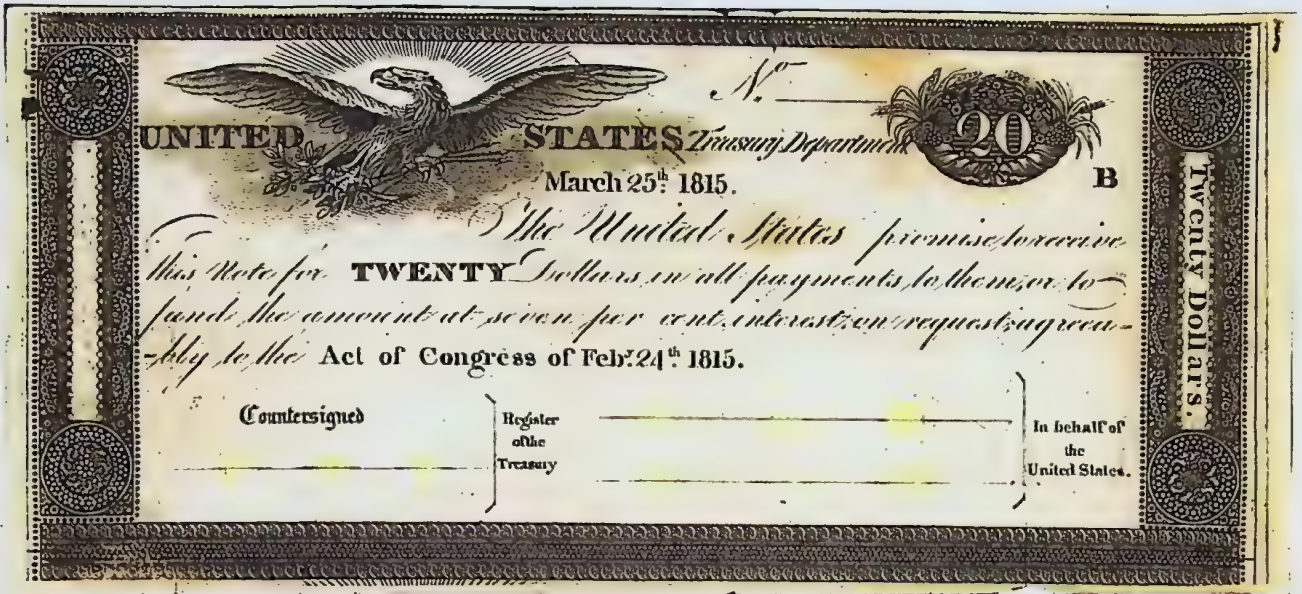 No.
UNITED STATES Treasury Department
20
B
March 25th. 1815.
The United States promise to receive
this Note for TWENTY Dollars in all payments to them, or to
fund the amount at seven per cent. interest, on request, agreea-
-bly to the Act of Congress of Feby. 24th. 1815.
Countersigned
Register
of the
Treasury
In behalf of
the
United States.
Twenty Dollars.